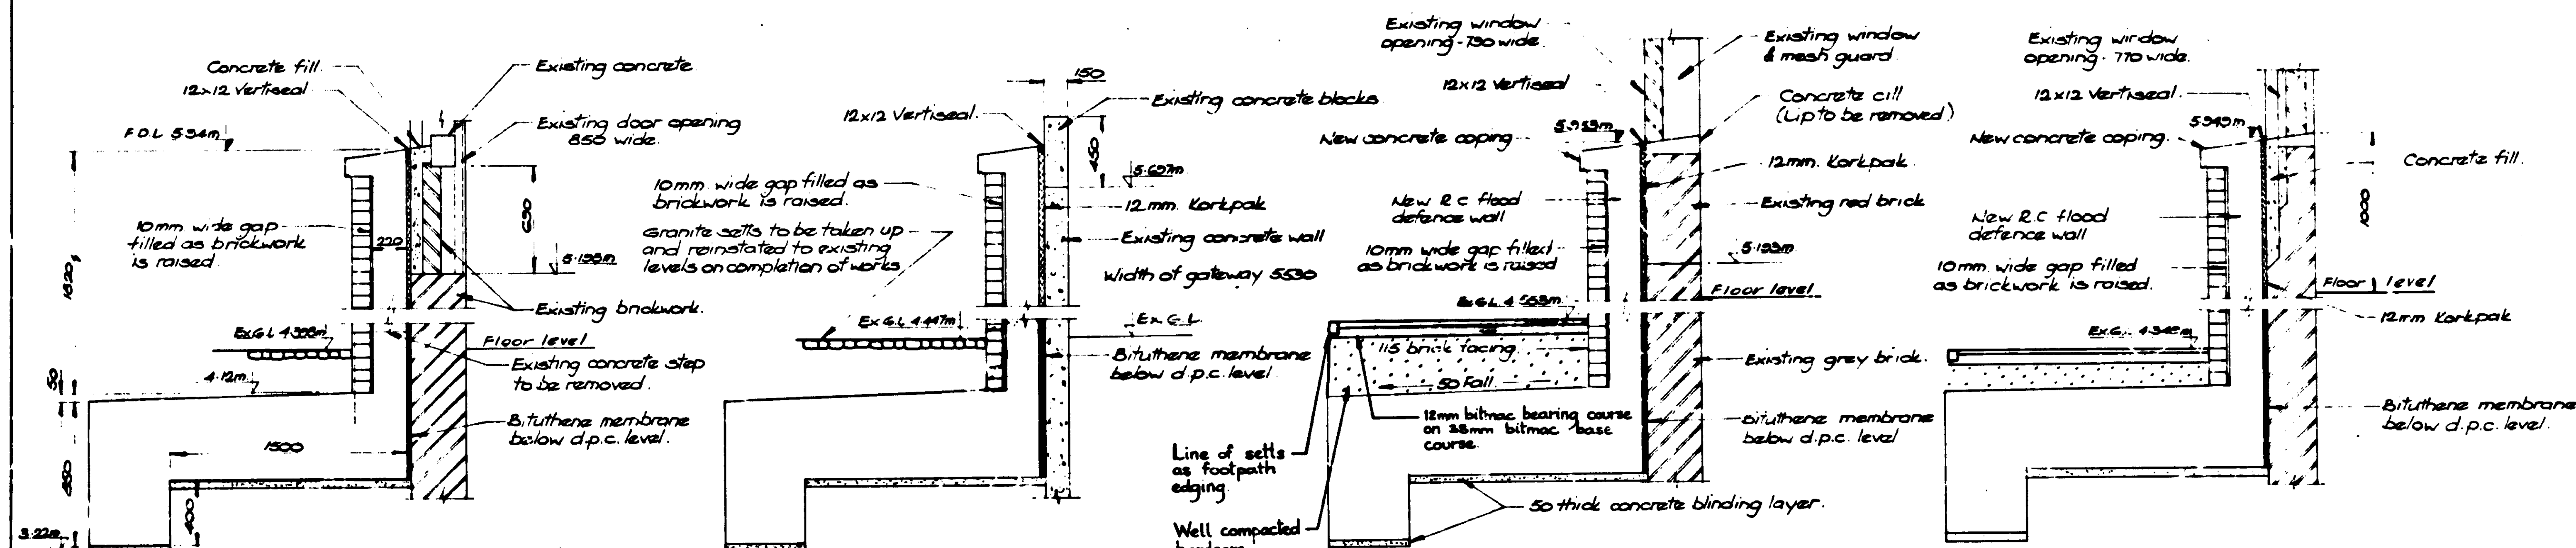 Concrete fill.
12x12 Vertiseal
F.D.L 5.94m
Existing concrete
Existing door opening
850 wide.
10mm wide gap
filled as brickwork
is raised.
220
690
1820
Existing brickwork.
Floor level
Existing concrete step
to be removed.
4.12m
50
850
1500
400
3.22m
Bituthene membrane
below d.p.c. level.
150
12x12 Vertiseal.
Existing concrete blocks
450
5.697m
10mm. wide gap filled as
brickwork is raised.
12mm. Korkpak
Granite setts to be taken up
and reinstated to existing
levels on completion of works
Existing concrete wall
Width of gateway 5530
Ex G.L 4.447m
Ex. G.L.
Bituthene membrane
below d.p.c. level
Existing window
opening - 790 wide.
Existing window
& mesh guard.
12x12 Vertiseal
Concrete cill
(Lip to be removed)
5.959m
New concrete coping
12mm. Korkpak
New R.C flood
defence wall
Existing red brick
10mm wide gap filled
as brickwork is raised
Floor level
115 brick facing
50 Fall.
Existing grey brick.
12mm bitmac bearing course
on 38mm bitmac base
course.
Bituthene membrane
below d.p.c. level
Line of setts
as footpath
edging.
Well compacted
50 thick concrete blinding layer.
Existing window
opening - 770 wide.
12x12 Vertiseal.
5.949m
New concrete coping.
Concrete fill.
1000
New R.C flood
defence wall
10mm. wide gap filled
as brickwork is raised.
Floor level
12mm Korkpak
Bituthene membrane
below d.p.c. level.